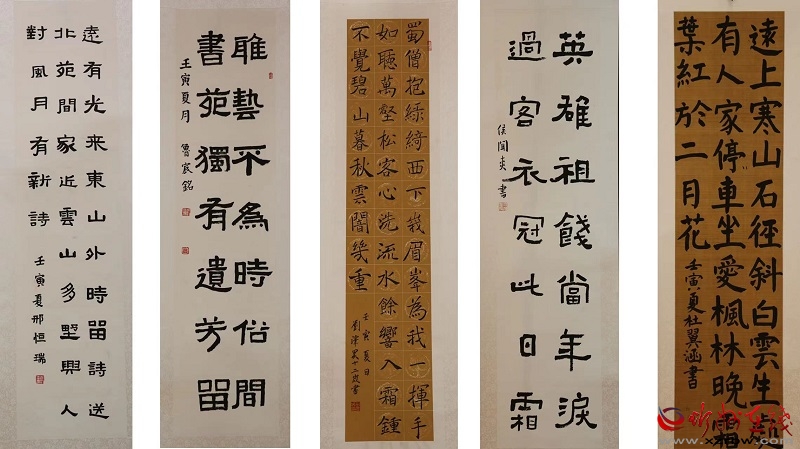 遠有光来東山外時留詩送
北苑間家近雲山多野興人
對風月有新詩
壬寅夏邢恒瑞
雕藝不為時俗間
書苑獨有遺芳留
壬寅夏月 魯宸銘
蜀僧抱綠綺西下峩眉峯為我一揮手
如聽萬壑松客心洗流水餘響入霜鍾
不覺碧山暮秋雲闇幾重
壬寅夏日
十二歲書
英雄祖餞當年淚
過客衣冠此日霜
侯閏炎書
遠上寒山石徑斜白雲生處
有人家停車坐愛楓林晚霜
葉紅於二月花
壬寅夏杜翼涵書
忻州在线